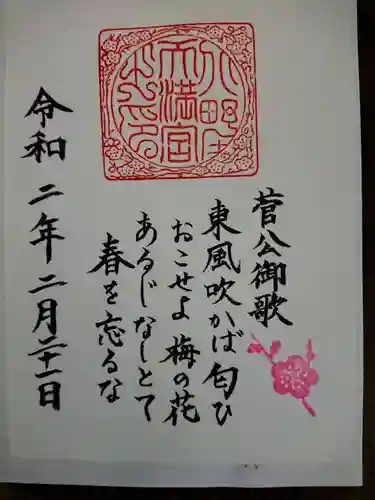 菅公御歌
東風吹かば匂ひ
おこせよ梅の花
あるじなしとて
春を忘るな
令和二年二月二十一日